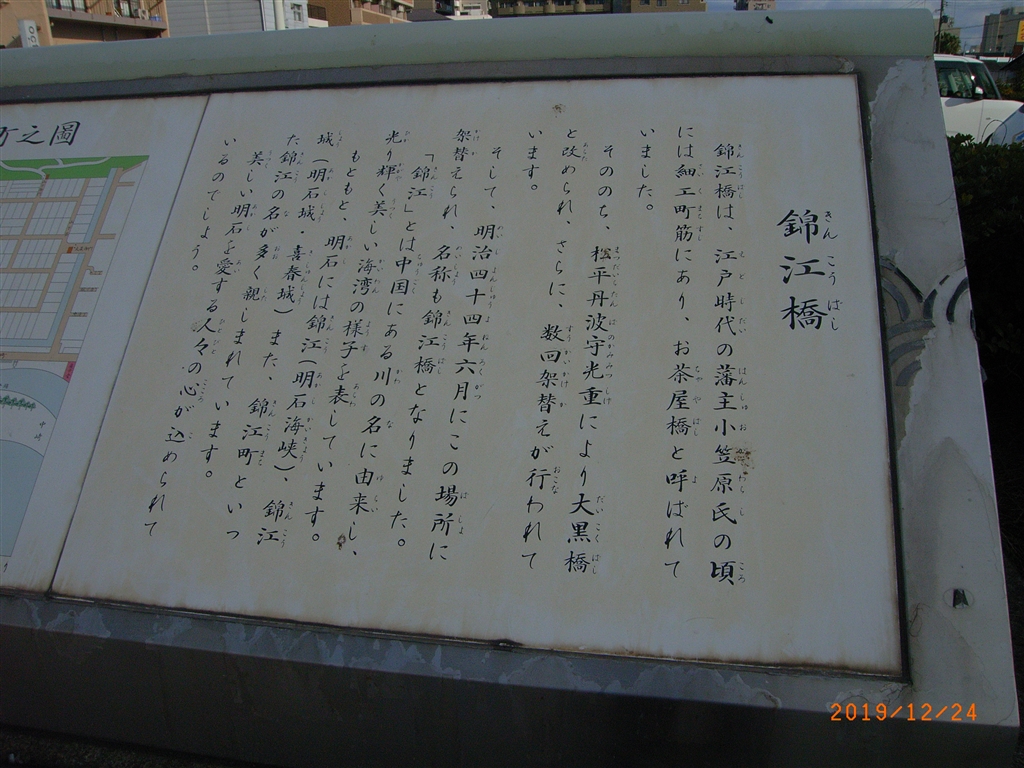 錦江橋
きんこうばし
錦江橋は、江戸時代の藩主小笠原氏の頃
には細工町筋にあり、お茶屋橋と呼ばれて
いました。
そののち、松平丹波守光重により大黒橋
と改められ、さらに、数回架替えが行われて
います。
そして、明治四十四年六月にこの場所に
架替えられ、名称も錦江橋となりました。
「錦江」とは中国にある川の名に由来し、
光り輝く美しい海湾の様子を表しています。
もともと、明石には錦江(明石海峡)、錦江
城(明石城・喜春城)また、錦江町といっ
た錦江の名が多く親しまれています。
美しい明石を愛する人々の心が込められて
いるのでしょう。
町之圖
2019/12/24